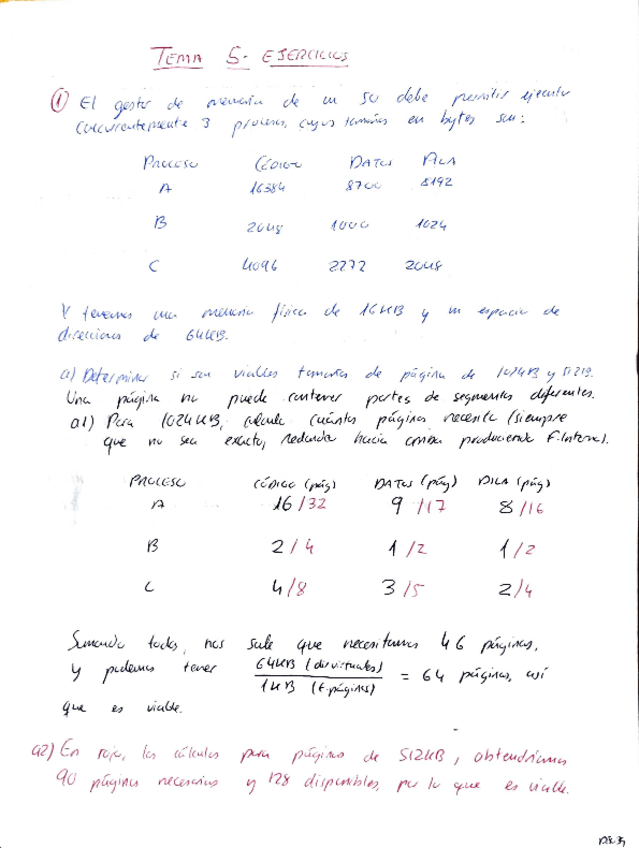 TEMA 5- EJERCICIOS
① El gestor de memoria de un SO debe permitir ejecutar
concurrentemente 3 procesos, cuyos tamaños en bytes son:
PROCESO CÓDIGO DATOS PILA
A 16384 8700 8192
B 2048 1000 1024
C 4096 2272 2048
Y tenemos una memoria física de 16KB y un espacio de
direcciones de 64KB.
a) Determinar si son viables tamaños de página de 1024B y 512B.
Una página no puede contener partes de segmentos diferentes.
a1) Para 1024KB, calcula cuántas páginas necesita (siempre
que no sea exacto, redondea hacia arriba produciendo F.Interna).
PROCESO CÓDIGO (pág) DATOS (pág) PILA (pág)
A 16/32 9/17 8/16
B 2/4 1/2 1/2
C 4/8 3/5 2/4
Sumando todas, nos sale que necesitamos 46 páginas,
y podemos tener 64KB (dir virtuales) / 1KB (t.páginas) = 64 páginas, así
que es viable.
a2) En rojo, los cálculos para páginas de 512KB, obtendríamos
90 páginas necesarias y 128 disponibles, por lo que es viable.